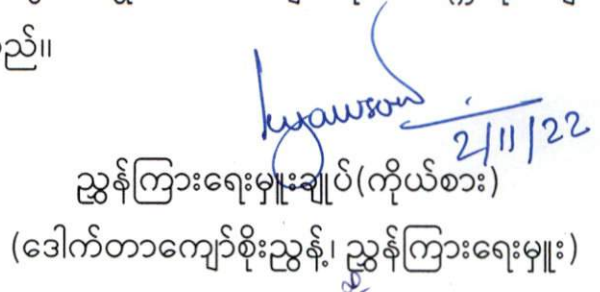 ည်။
kyawsoe
2/11/22
ညွှန်ကြားရေးမှူးချုပ်(ကိုယ်စား)
(ဒေါက်တာကျော်စိုးညွန့်၊ ညွှန်ကြားရေးမှူး)